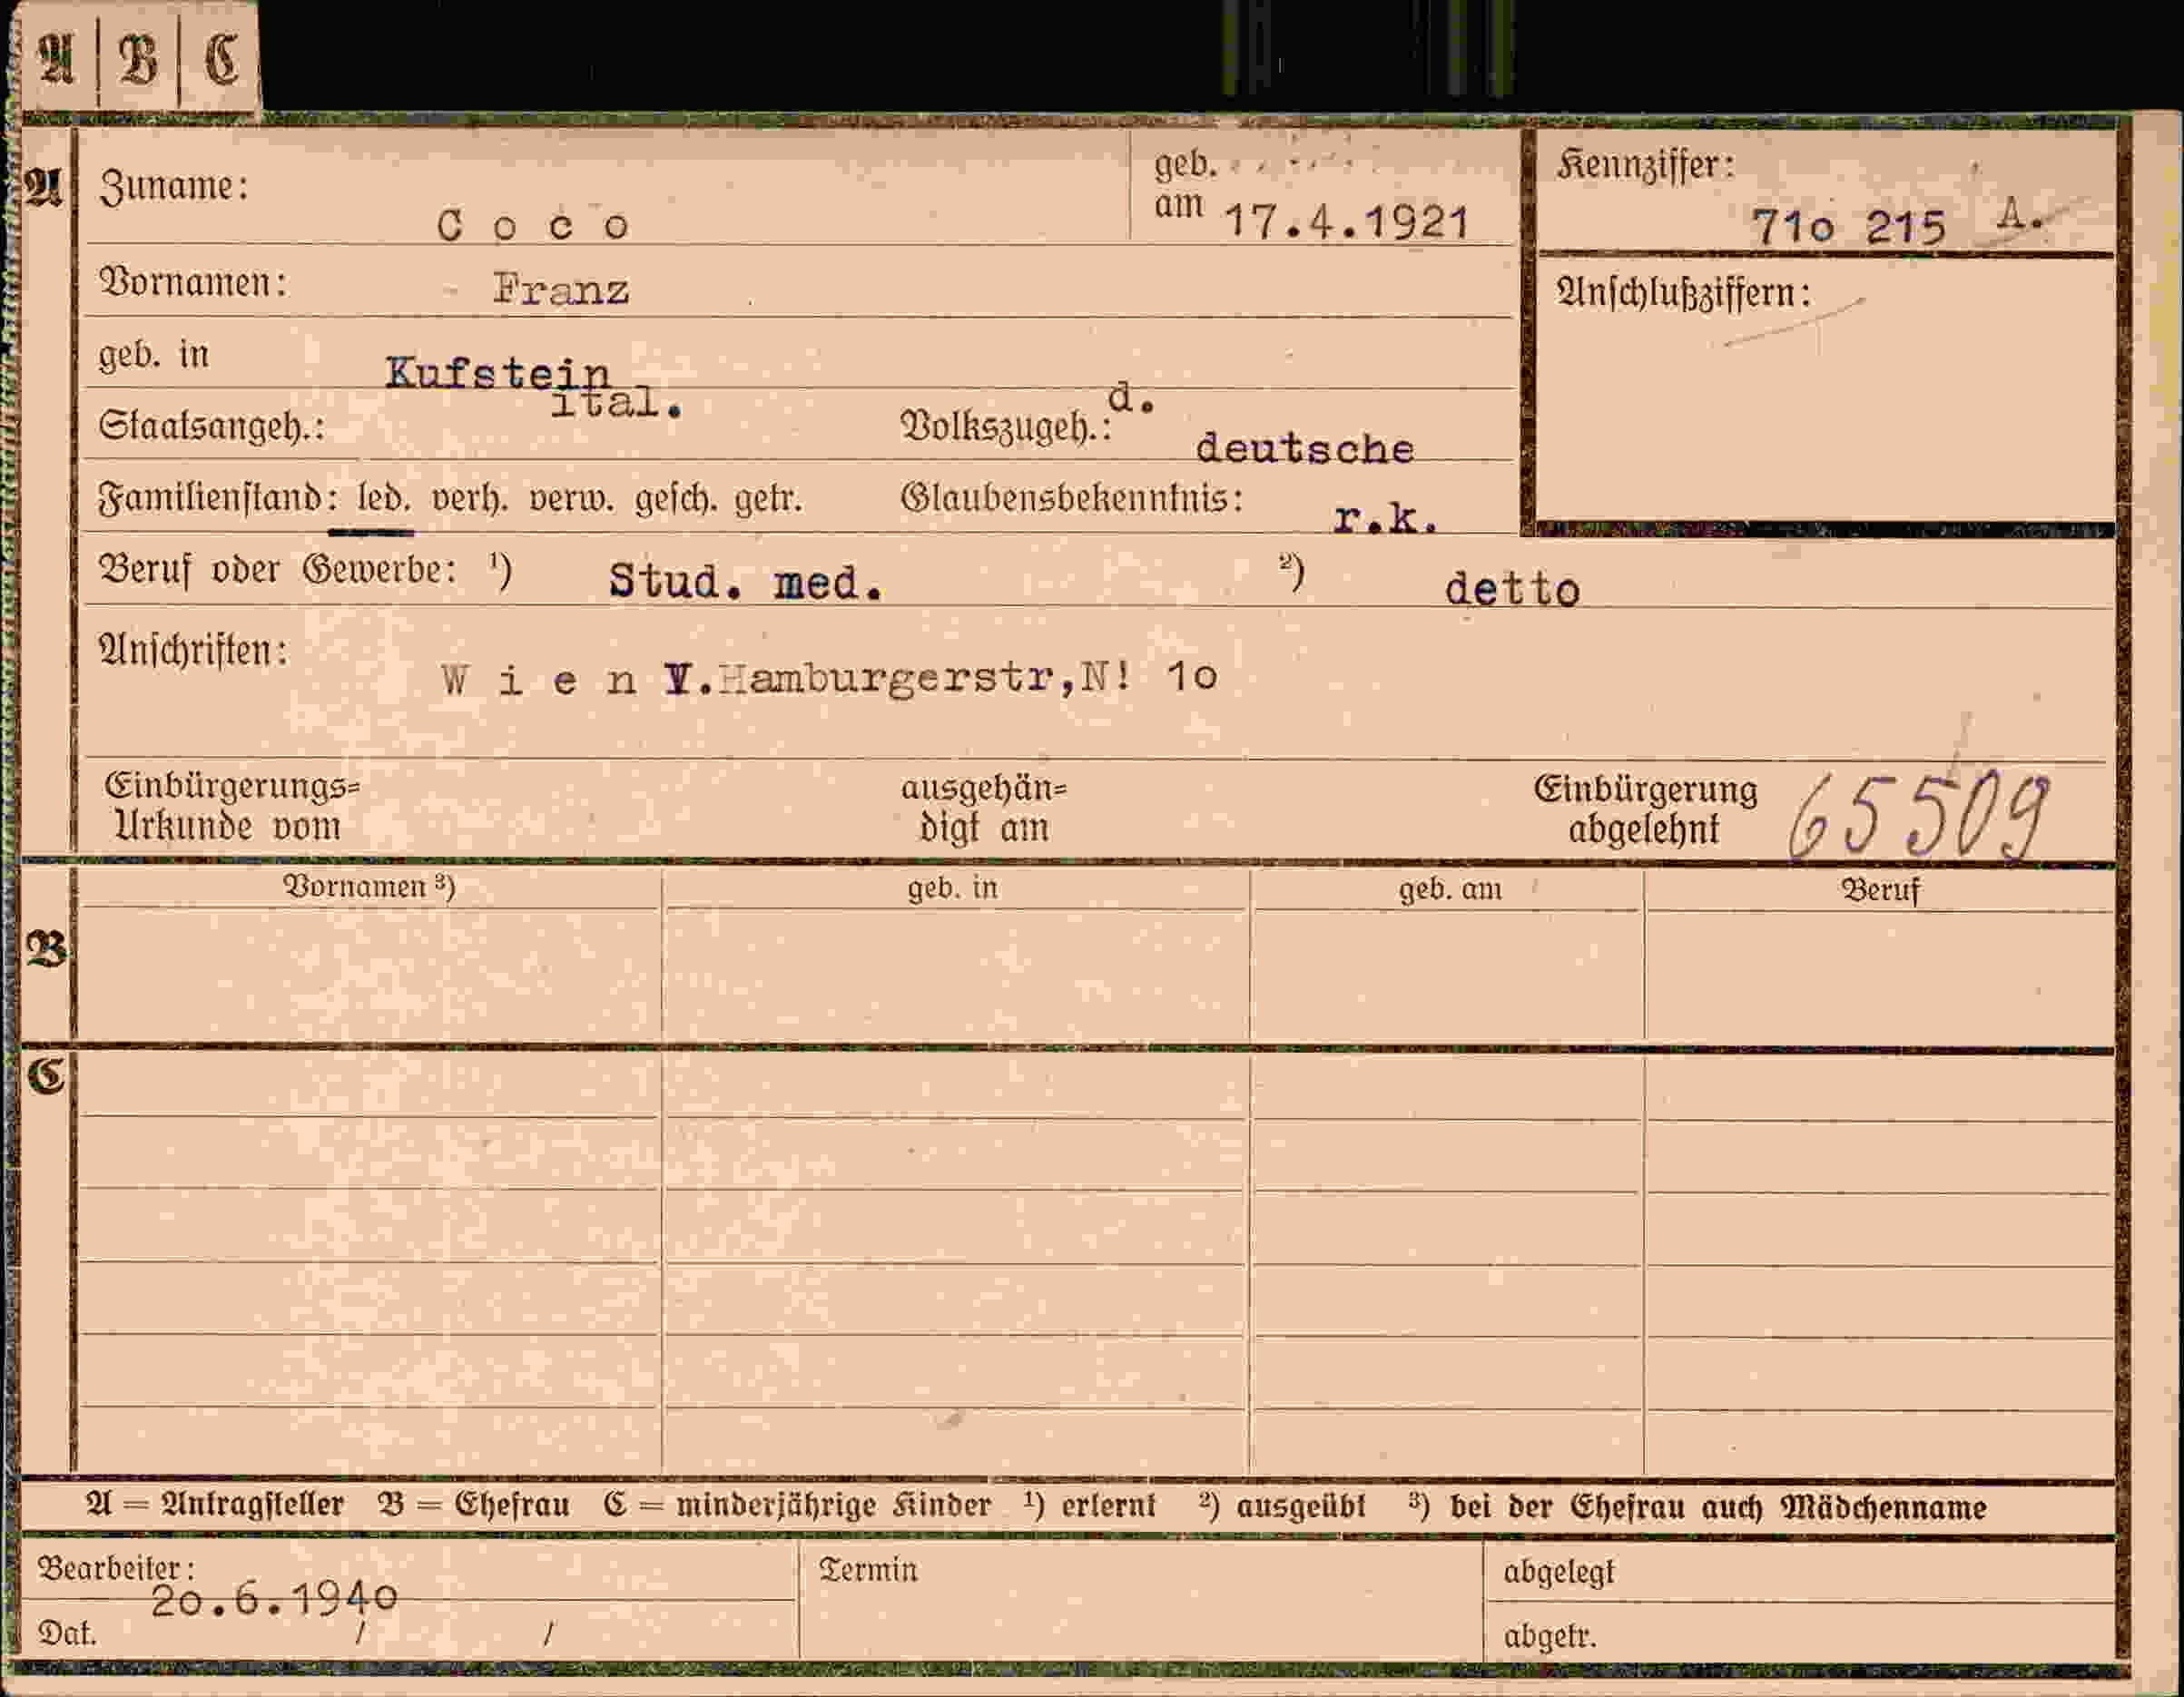 A | B | C
A Zuname: C o c o geb. am 17.4.1921
Kennziffer: 71o 215 A.
Vornamen: Franz
Anschlußziffern:
geb. in Kufstein
Staatsangeh.: ital. Volkszugeh.: d. deutsche
Familienstand: led. verh. verw. gesch. getr. Glaubensbekenntnis: r.k.
Beruf oder Gewerbe: ¹) Stud. med. ²) detto
Anschriften: W i e n V.Hamburgerstr,N! 1o
Einbürgerungs= ausgehän= Einbürgerung 65509
Urkunde vom digt am abgelehnt
Vornamen ³) geb. in geb. am Beruf
B
C
A = Antragsteller B = Ehefrau C = minderjährige Kinder ¹) erlernt ²) ausgeübt ³) bei der Ehefrau auch Mädchenname
Bearbeiter: Termin abgelegt
2o.6.194o
Dat. / / abgetr.